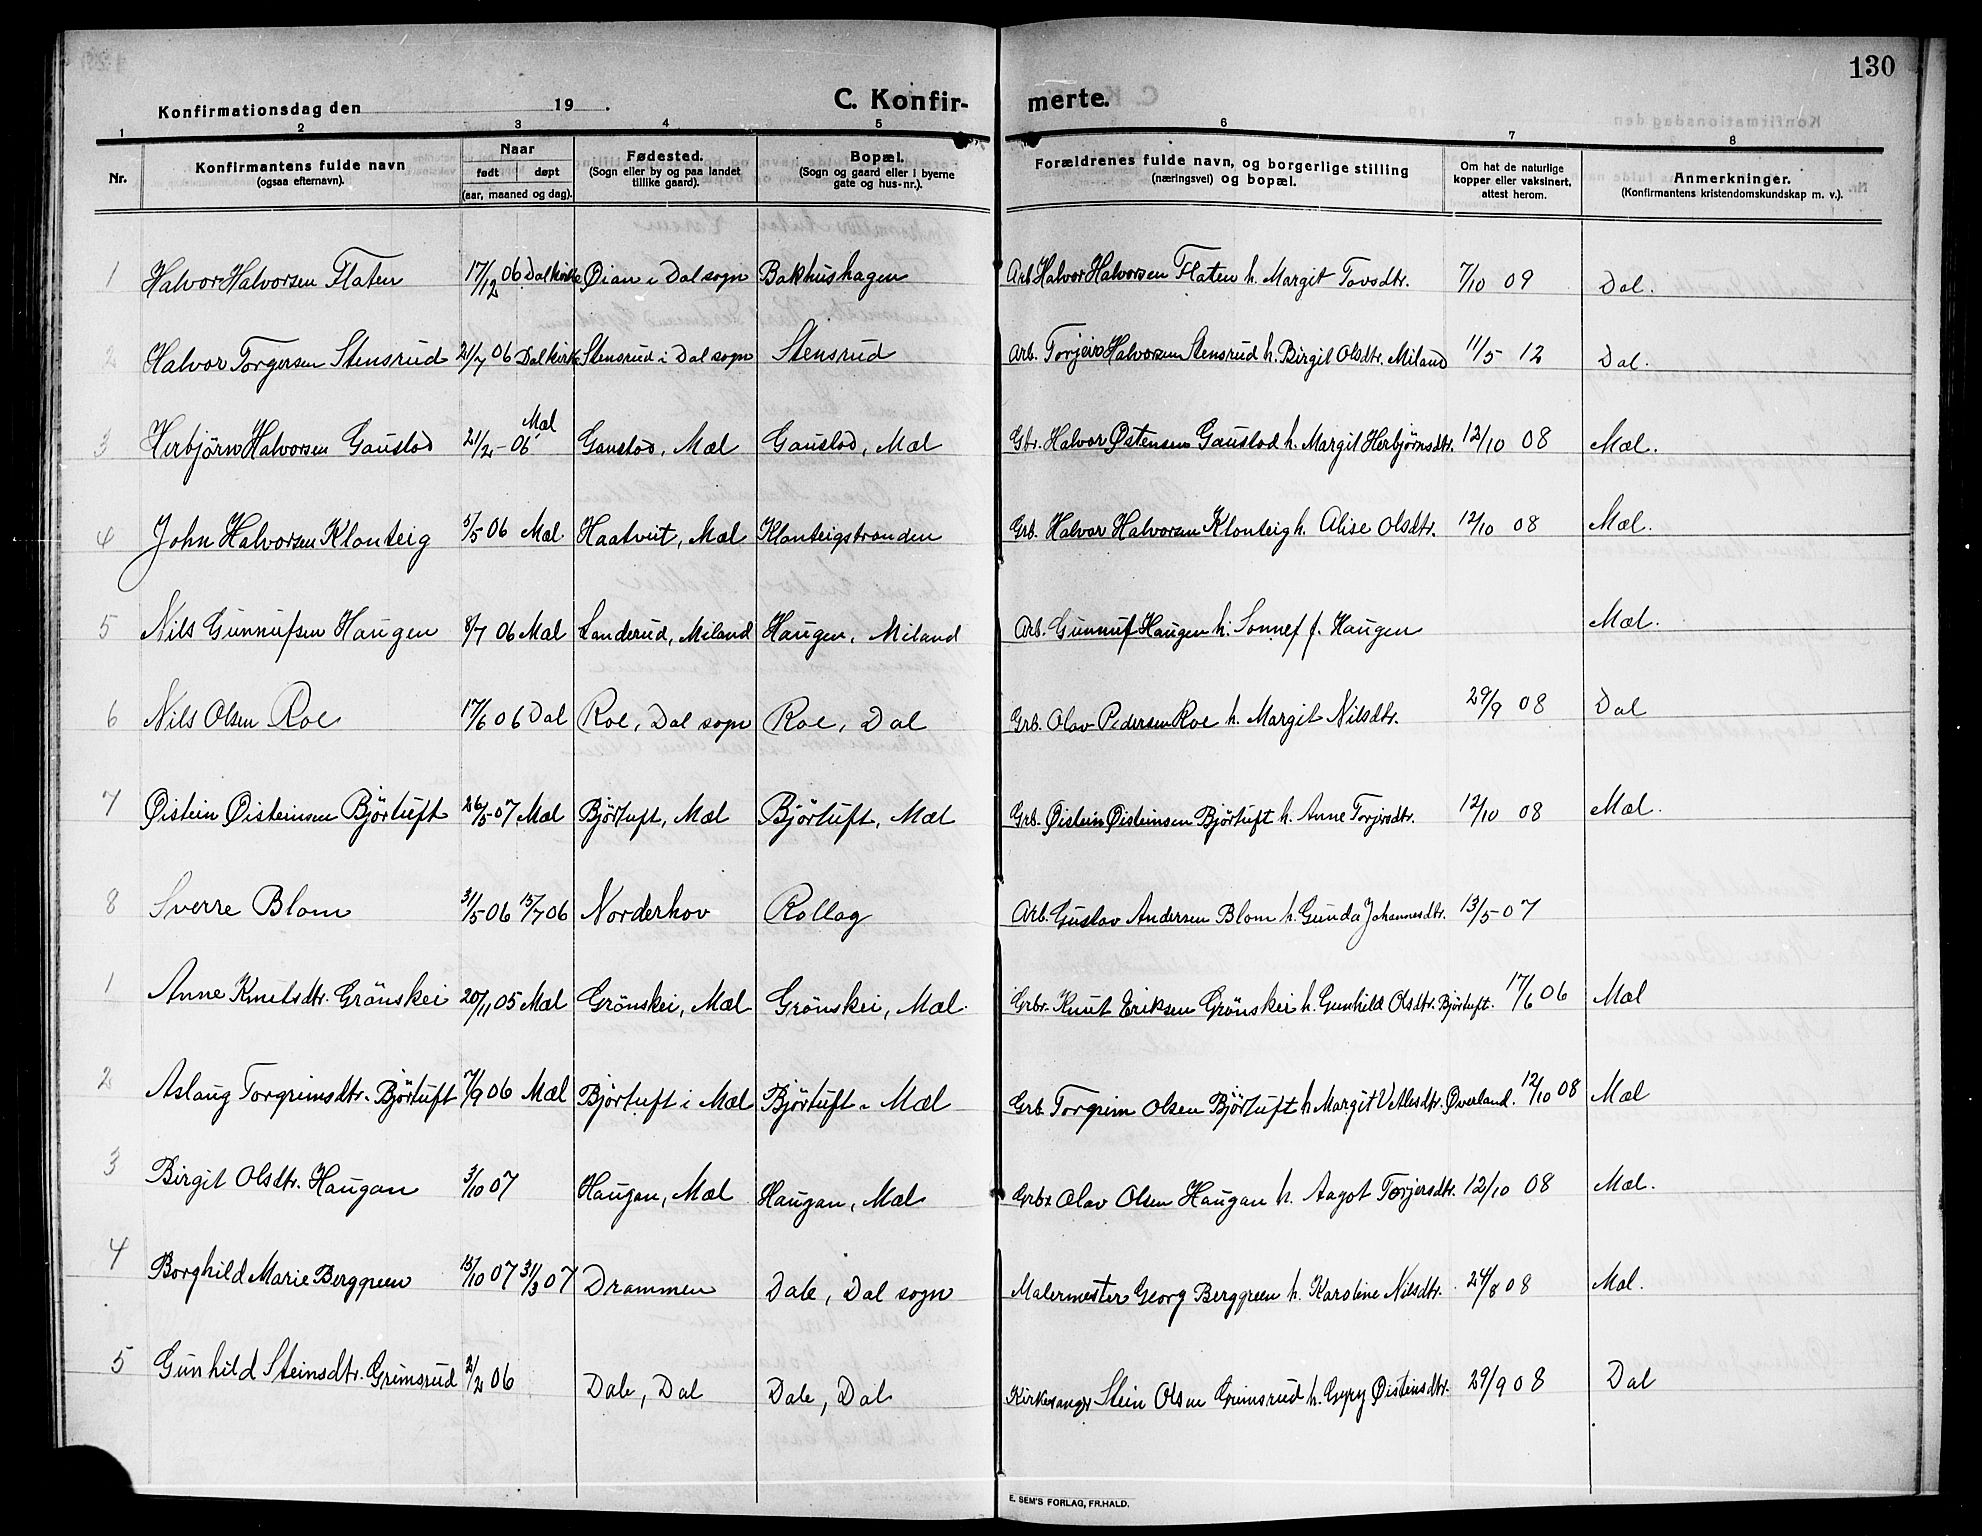 130
Konfirmationsdag den 19 .
C. Konfir- merte.
1 2 3 4 5 6 7 8
Nr. Konfirmantens fulde navn (ogsaa efternavn). Naar født døpt (aar, maaned og dag). Fødested. (Sogn eller by og paa landet tillike gaard). Bopæl. (Sogn og gaard eller i byerne gate og hus-nr.). Forældrenes fulde navn, og borgerlige stilling (næringsvei) og bopæl. Om hat de naturlige kopper eller vaksinert, attest herom. Anmerkninger. (Konfirmantens kristendomskundskap m. v.).
1 Halvor Halvorsen Flaten 17/12 06 Dal kirke Øian i Dal sogn Bakhushagen Arb. Halvor Halvorsen Flaten h. Margit Tovsdtr. 7/10 09 Dal.
2 Halvor Torgersen Stensrud 21/7 06 Dal kirke Stensrud i Dal sogn Stensrud Arb. Torjeir Halvorsen Stensrud h. Birgit Olsdtr. Miland 11/5 12 Dal.
3 Herbjörn Halvorsen Gaustad 21/2 - 06 Mæl Gaustad, Mæl Gaustad, Mæl Gbr. Halvor Østensen Gaustad h. Margit Herbjørnsdtr. 12/10 08 Mæl.
4 John Halvorsen Klonteig 5/5 06 Mæl Haatveit, Mæl Klonteigstranden Grb. Halvor Halvorsen Klonteig h. Alise Olsdtr. 12/10 08 Mæl.
5 Nils Gunnufsen Haugen 8/7 06 Mæl Landerud, Miland Haugen, Miland Arb. Gunnuf Haugen h. Sonnef f. Haugen Mæl.
6 Nils Olsen Roe 17/6 06 Dal Roe, Dal sogn Roe, Dal Grb. Olav Pedersen Roe h. Margit Nilsdtr. 29/9 08 Dal
7 Øistein Øisteinsen Björtuft 26/5 07 Mæl Björtuft, Mæl Björtuft, Mæl Grb. Øistein Øisteinsen Björtuft h. Anne Torjersdtr. 12/10 08 Mæl.
8 Sverre Blom 31/5 06 15/7 06 Norderhov Rollag Arb. Gustav Andersen Blom h. Gunda Johannesdtr. 13/5 - 07
1 Anne Knutsdtr. Grönskei 20/11 05 Mæl Grönskei, Mæl Grönskei, Mæl. Grbr. Knut Eriksen Grönskei h. Gunhild Olsdtr. Björtuft. 17/6 06 Mæl
2 Aslaug Torgrimsdtr. Björtuft 7/9 06 Mæl Björtuft i Mæl Björtuft i Mæl Grb. Torgrim Olsen Björtuft h Margit Vetlesdtr. Øverland. 12/10 08 Mæl
3 Birgit Olsdtr. Haugan 3/10 07 Haugan, Mæl Haugan, Mæl Grbr. Olav Olsen Haugan h. Aagot Torjersdtr. 12/10 08 Mæl.
4 Borghild Marie Berggreen 15/10 07 31/3 07 Drammen Dale, Dal sogn Malermester Georg Berggreen h. Karoline Nilsdtr. 24/8 08 Mæl.
5 Gunhild Steinsdtr. Grimsrud 2/2 06 Dale, Dal Dale, Dal Kirkesanger Stein Olsen Grimsrud h. Gyry Øisteinsdtr. 29/9 08 Dal
E. SEM'S FORLAG, FR.HALD.